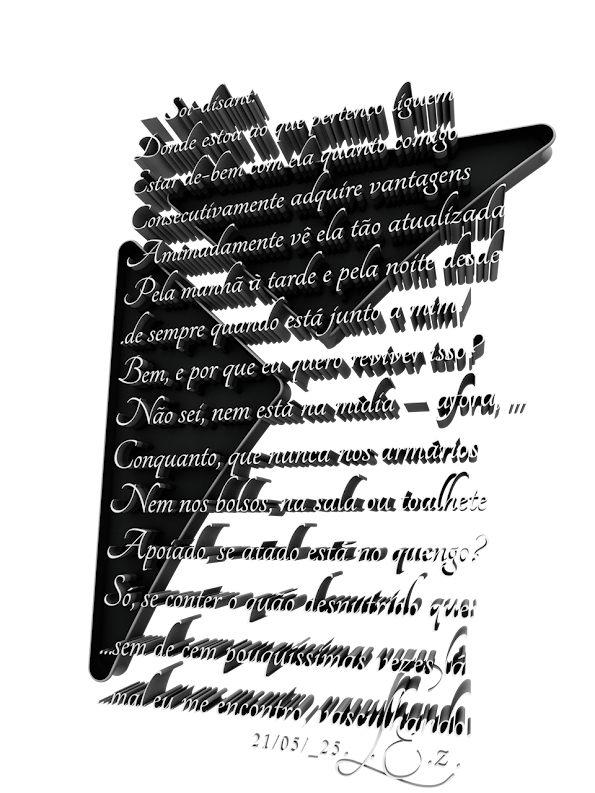 Soi-disant.
Donde estou ao que pertenço alguém
Estar de-bem com ela quanto comigo
Consecutivamente adquire vantagens
Amimadamente vê ela tão atualizada
Pela manhã à tarde e pela noite desde
.de sempre quando está junto a mim!
Bem, e por que eu quero reviver isso?
Não sei, nem está na mídia — afora, ...
Conquanto, que nunca nos armários
Nem nos bolsos, na sala ou toalhete
Apoiado, se atado está no quengo?
Só, se conter o quão desnutrido que:
...sem de cem pouquíssimas vezes, lá
mal eu me encontro vasculhando
21/05/_25.